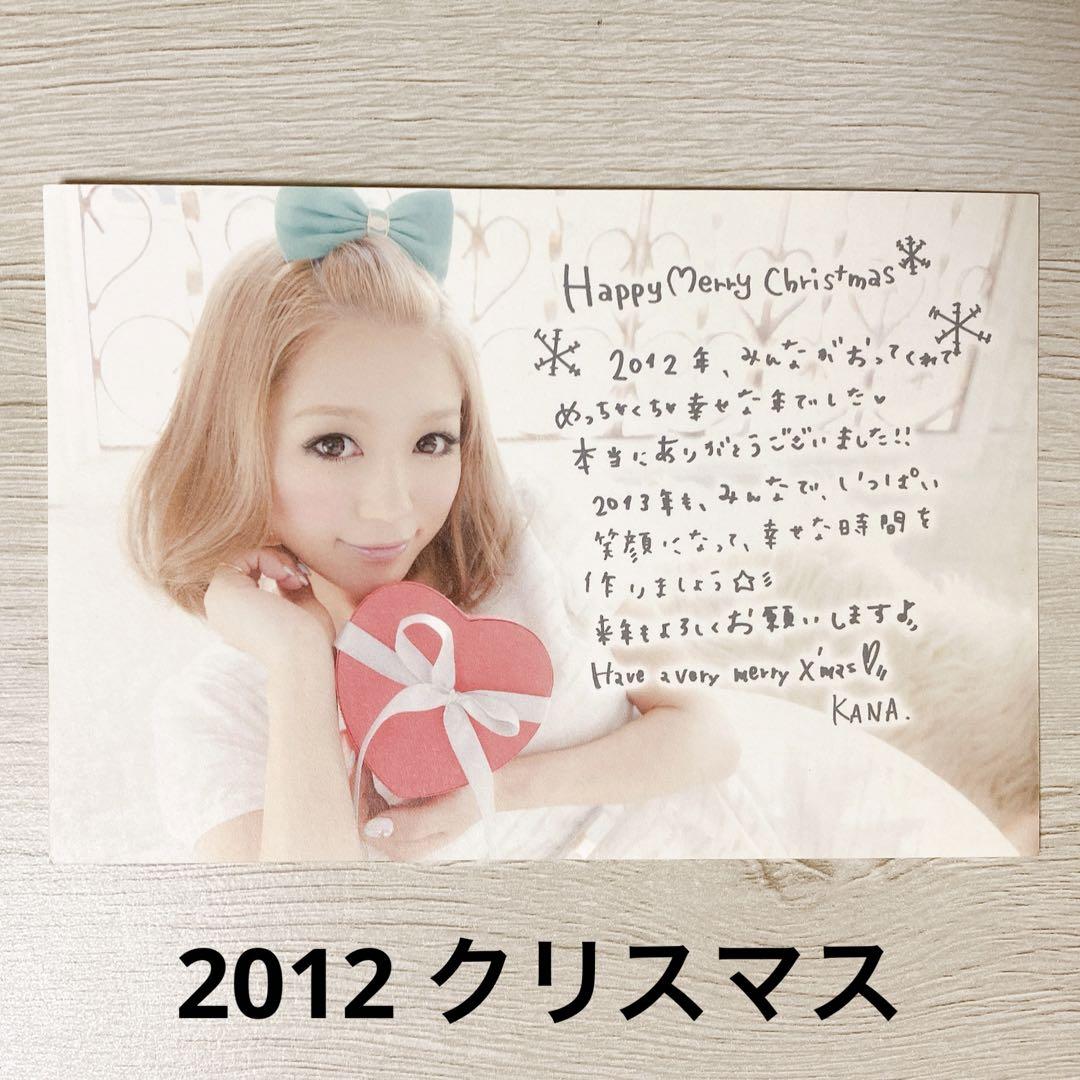 Happy Merry Christmas
2012年、みんながおってくれて
めっちゃくちゃ幸せな年でした♥
本当にありがとうございました!!
2013年も、みんなで、いっぱい
笑顔になって、幸せな時間を
作りましょう☆ミ
来年もよろしくお願いしますよ〟
Have a very merry X'mas♡〟
KANA.
2012 クリスマス